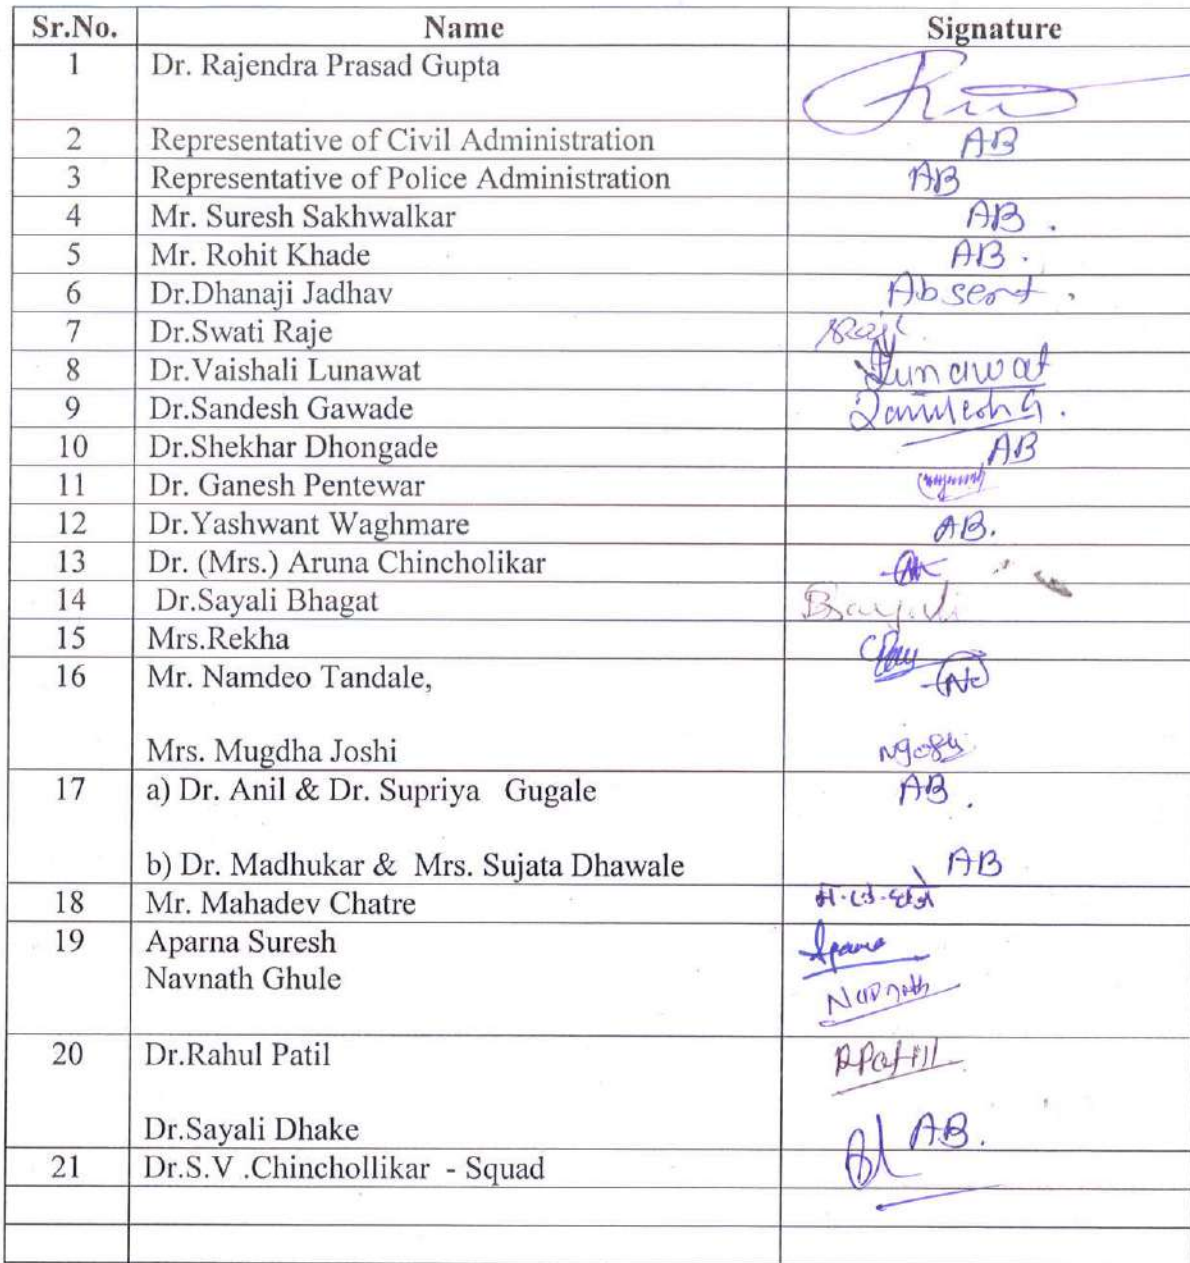 Sr.No. Name Signature
1 Dr. Rajendra Prasad Gupta
2 Representative of Civil Administration AB
3 Representative of Police Administration AB
4 Mr. Suresh Sakhwalkar AB .
5 Mr. Rohit Khade AB .
6 Dr.Dhanaji Jadhav Absent .
7 Dr.Swati Raje
8 Dr.Vaishali Lunawat Lunawat
9 Dr.Sandesh Gawade
10 Dr.Shekhar Dhongade AB
11 Dr. Ganesh Pentewar
12 Dr.Yashwant Waghmare AB.
13 Dr. (Mrs.) Aruna Chincholikar
14 Dr.Sayali Bhagat
15 Mrs.Rekha
16 Mr. Namdeo Tandale,
Mrs. Mugdha Joshi
17 a) Dr. Anil & Dr. Supriya Gugale AB .
b) Dr. Madhukar & Mrs. Sujata Dhawale AB
18 Mr. Mahadev Chatre
19 Aparna Suresh
Navnath Ghule Navnath
20 Dr.Rahul Patil RPatil
Dr.Sayali Dhake AB.
21 Dr.S.V .Chinchollikar - Squad